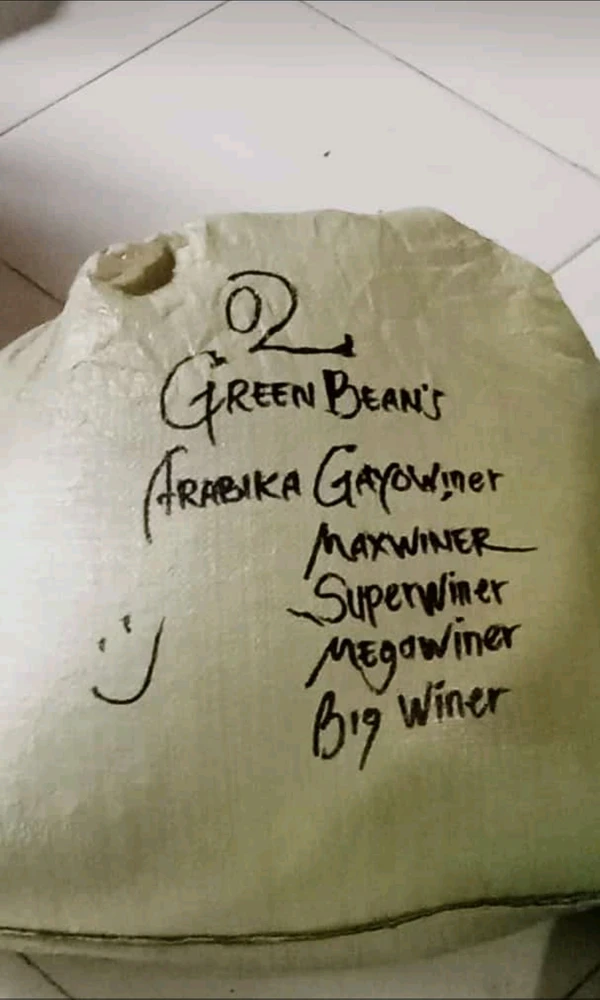 02
GREEN BEAN'S
ARABIKA GAYOWiner
MAXWINER
SuperWiner
MEgaWiner
Big Winer